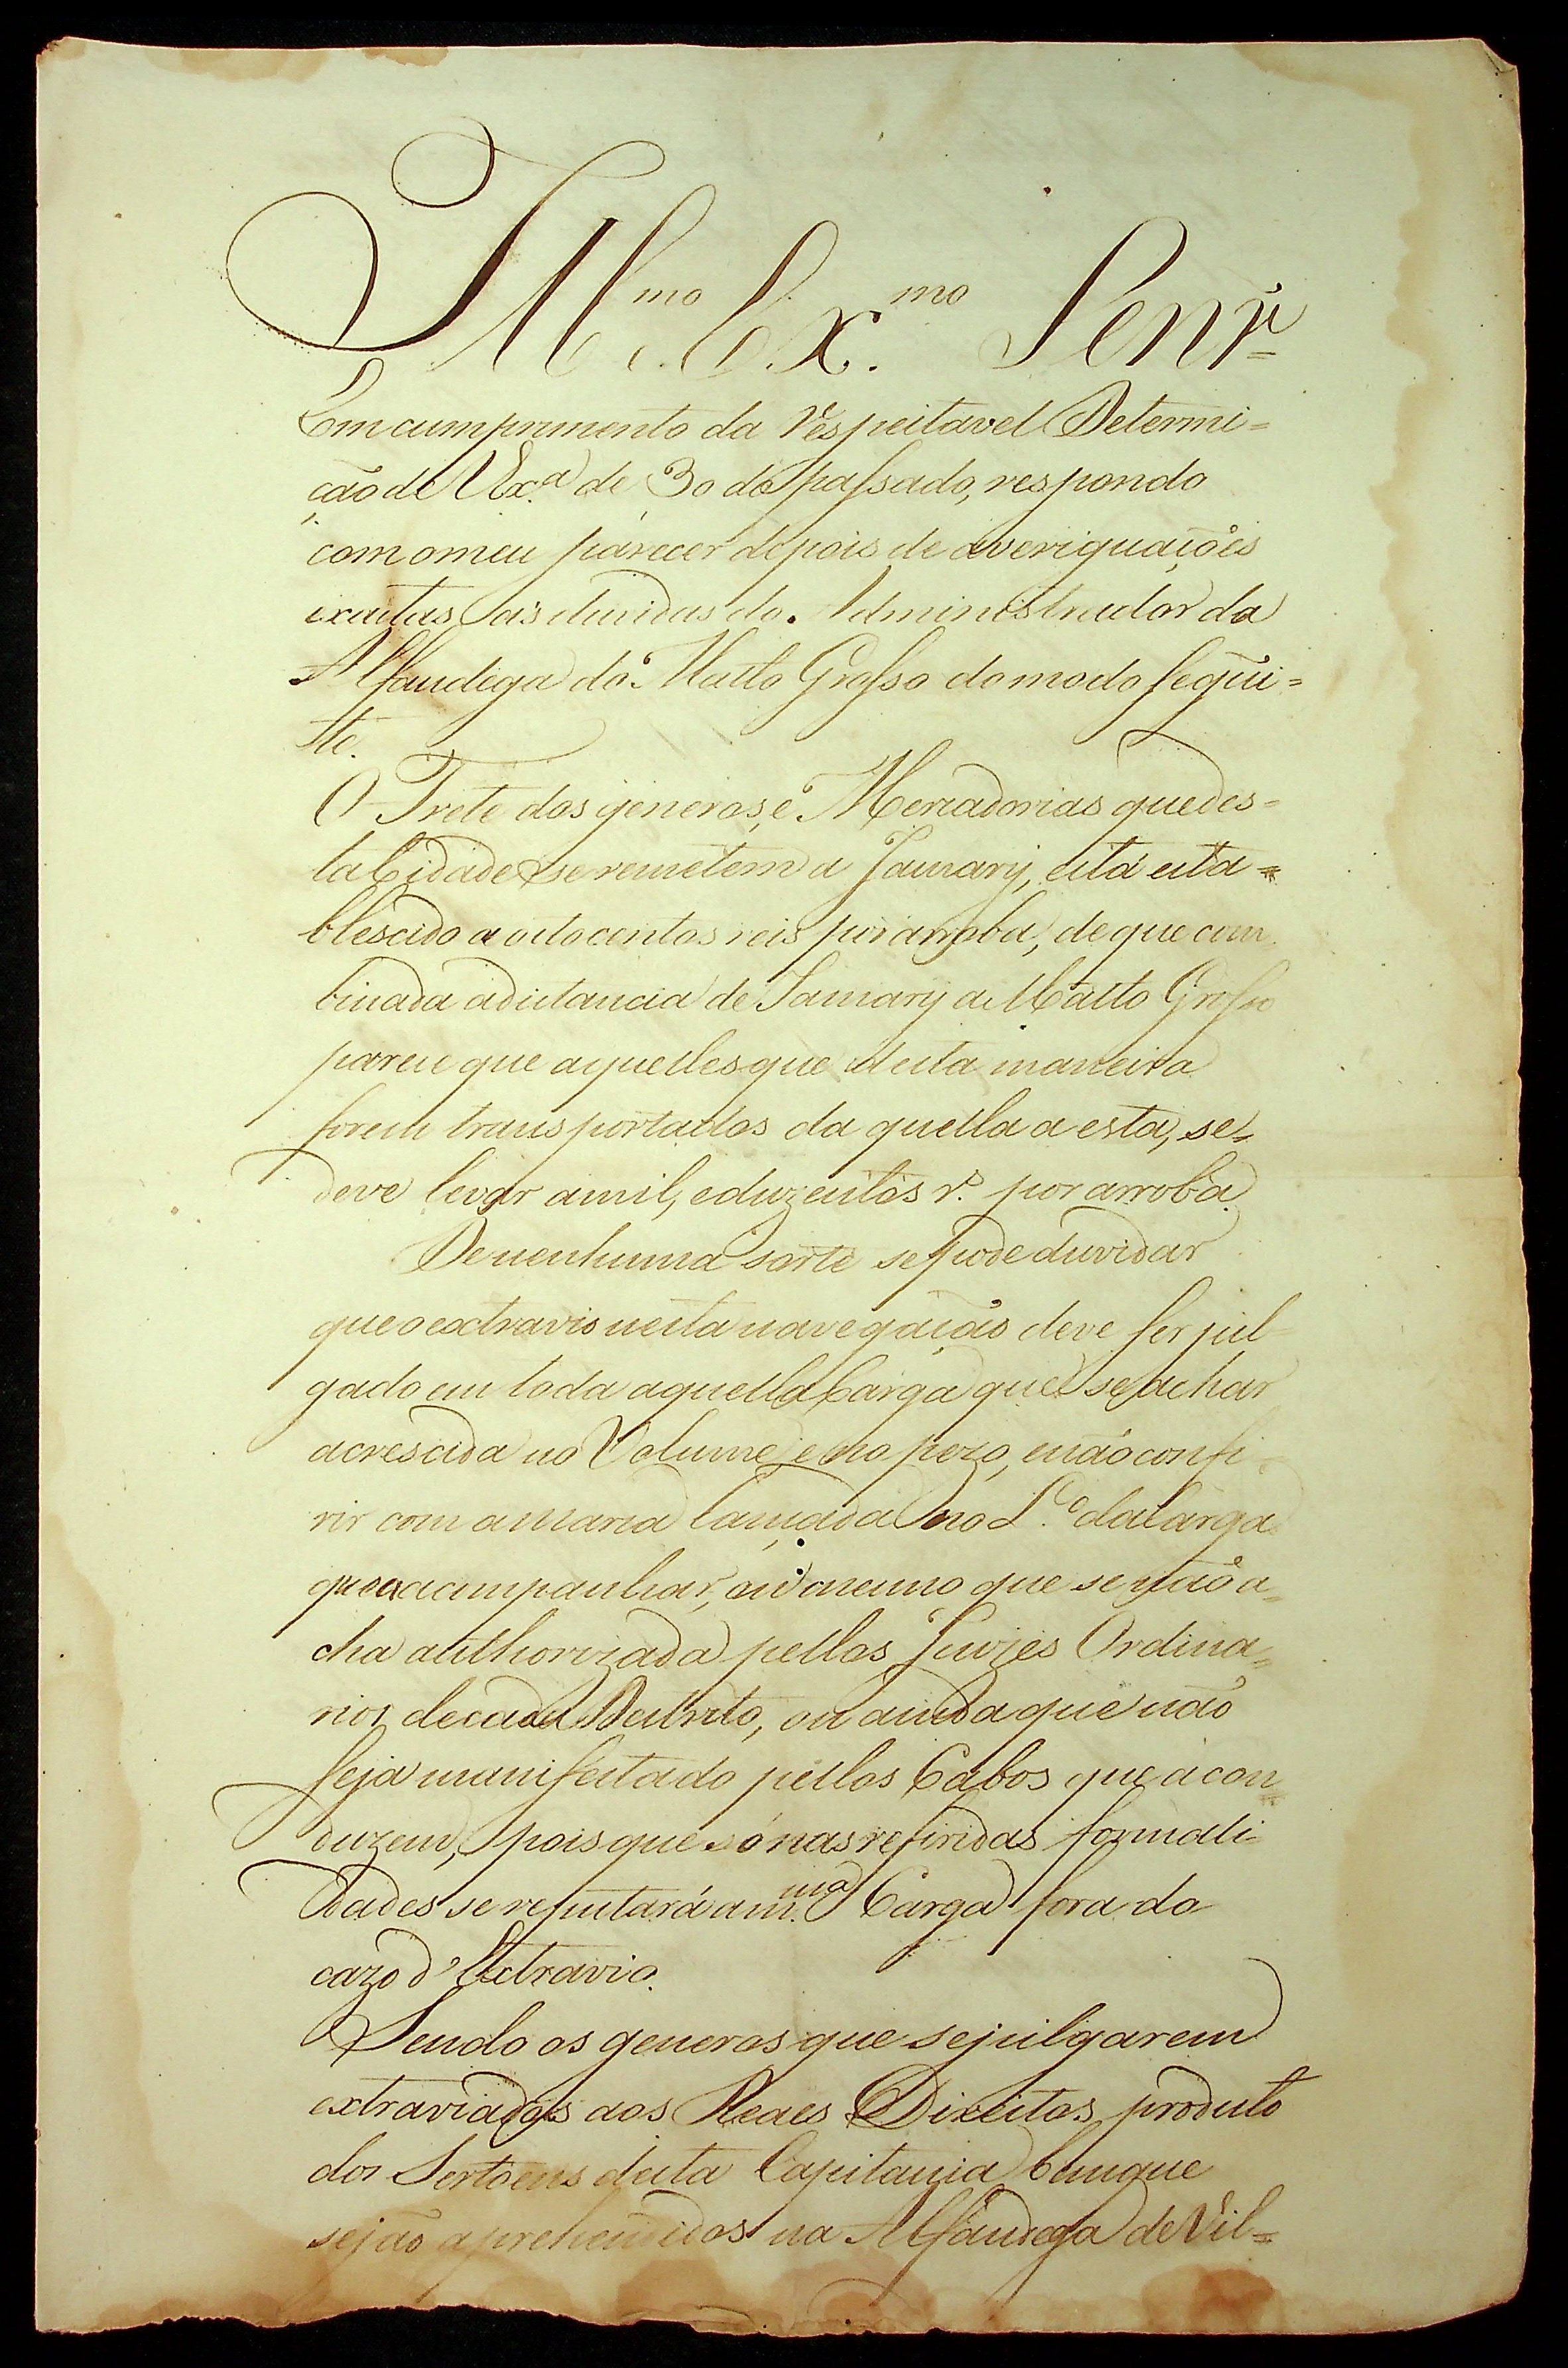 Ill.mo Ex.mo Senr.
Em cumprimento da respeitavel Determi=
ção de VEx.a de 30 do passado, respondo
com o meu parecer depois de averiguações
exactas as duvidas do Administrador da
Alfandega do Matto Grosso do modo segui=
te.
O Frete dos generos, e Mercadorias que des=
ta Cidade se remetem a Jamary, está esta=
blescido a oitocentos reis por arroba, de que com
binada a distancia de Jamary a Matto Grosso
parece que aquelles que desta maneira
forem transportados da quella a esta, se=
deve levar a mil, e duzentos r.s por arroba.
De nenhuma sorte se pode duvidar
que o extravio nesta navegação deve ser jul=
gado em toda aquella Carga que se achar
acrescida no Volume, e no pezo, e não confi=
rir com a marca lançada no L.o da Carga
que a acompanhar, ou mesmo que se não a=
cha authorizada pellos Juizes Ordina=
rios de cada Destrito, ou ainda que não
seja manifestado pellos Cabos que a con=
duzem, pois que só nas refiridas formali=
dades se reputará a m.ma Carga fora do
cazo d'Extravio.
Sendo os generos que se julgarem
extraviados aos Reaes Direitos produto
dos Sertoens desta Capitania bem que
sejão aprehendidos na Alfandega de Vil=